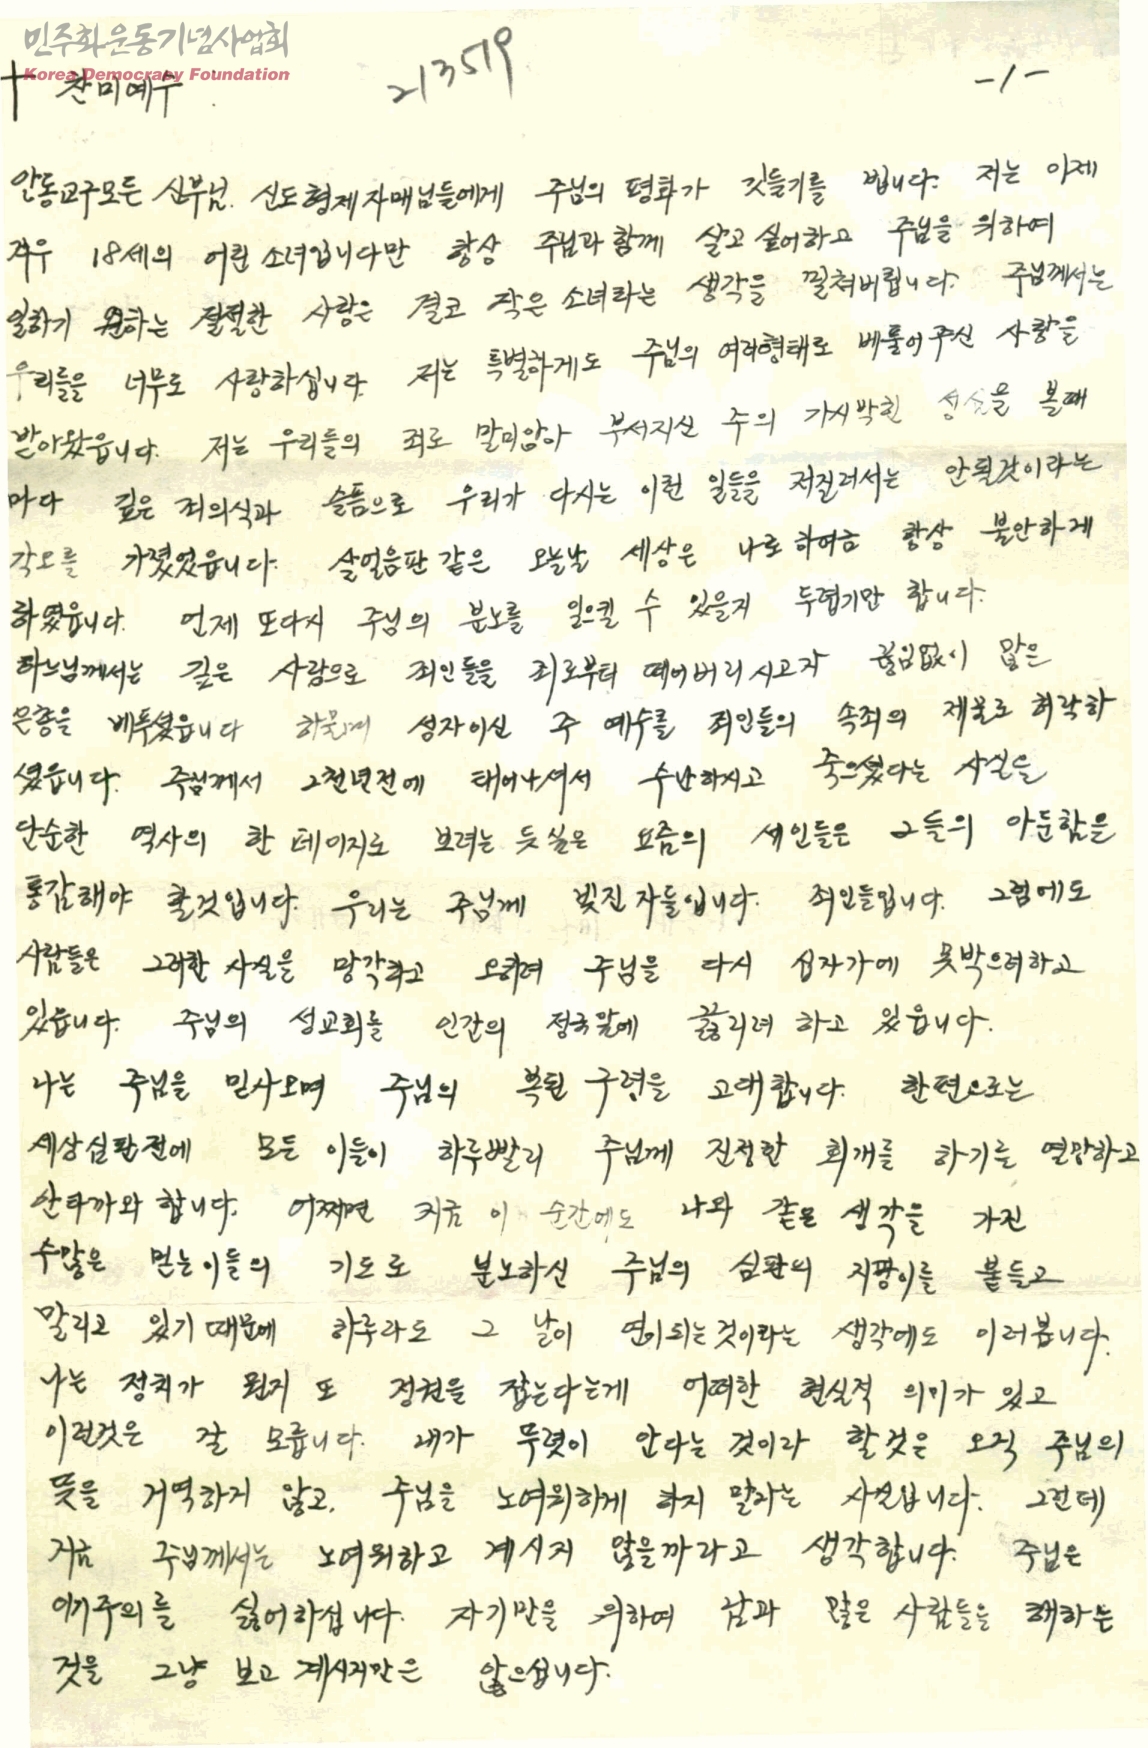 민주화운동기념사업회
Korea Democracy Foundation
213519
- 1 -
† 찬미예수
안동교구모든 신부님. 신도형제자매님들에게 주님의 평화가 깃들기를 빕니다. 저는 이제
겨우 18세의 어린 소녀입니다만 항상 주님과 함께 살고 싶어하고 주님을 위하여
일하기 원하는 절절한 사랑은 결코 작은 소녀라는 생각을 떨쳐버립니다. 주님께서는
우리들을 너무도 사랑하십니다. 저는 특별하게도 주님의 여러형태로 베풀어주신 사랑을
받아왔읍니다. 저는 우리들의 죄로 말미암아 부서지신 주의 가시박힌 성심을 볼때
마다 깊은 죄의식과 슬픔으로 우리가 다시는 이런 일들을 저질러서는 안될것이라는
각오를 가졌었읍니다. 살얼음판 같은 오늘날 세상은 나로 하여금 항상 불안하게
하였읍니다. 언제 또다시 주님의 분노를 일으킬 수 있을지 두렵기만 합니다.
하느님께서는 깊은 사랑으로 죄인들을 죄로부터 떼어버리시고자 끊임없이 많은
은총을 베푸셨읍니다 하물며 성자이신 주 예수를 죄인들의 속죄의 제물로 허락하
셨읍니다. 주님께서 2천년전에 태어나셔서 수난하시고 죽으셨다는 사실을
단순한 역사의 한 페이지로 보려는 듯 싶은 요즘의 세인들은 그들의 아둔함을
통감해야 할것입니다. 우리는 주님께 빚진 자들입니다. 죄인들입니다. 그럼에도
사람들은 그러한 사실을 망각하고 오히려 주님을 다시 십자가에 못박으려하고
있읍니다. 주님의 성교회를 인간의 정국앞에 꿇리려 하고 있읍니다.
나는 주님을 믿사오며 주님의 복된 구령을 고대합니다. 한편으로는
세상심판전에 모든 이들이 하루빨리 주님께 진정한 회개를 하기를 열망하고
안타까와 합니다. 어쩌면 지금 이 순간에도 나와 같은 생각을 가진
수많은 믿는이들의 기도로 분노하신 주님의 심판의 지팡이를 붙들고
말리고 있기 때문에 하루라도 그 날이 연기되는것이라는 생각에도 이러봅니다.
나는 정치가 뭔지 또 정권을 잡는다는게 어떠한 현실적 의미가 있고
이런것은 잘 모릅니다. 내가 뚜렷이 안다는 것이라 할것은 오직 주님의
뜻을 거역하지 않고, 주님을 노여워하게 하지 말라는 사실입니다. 그런데
지금 주님께서는 노여워하고 계시지 않을까라고 생각합니다. 주님은
이기주의를 싫어하십니다. 자기만을 위하여 남과 많은 사람들을 해하는
것을 그냥 보고 계시지만은 않으십니다.